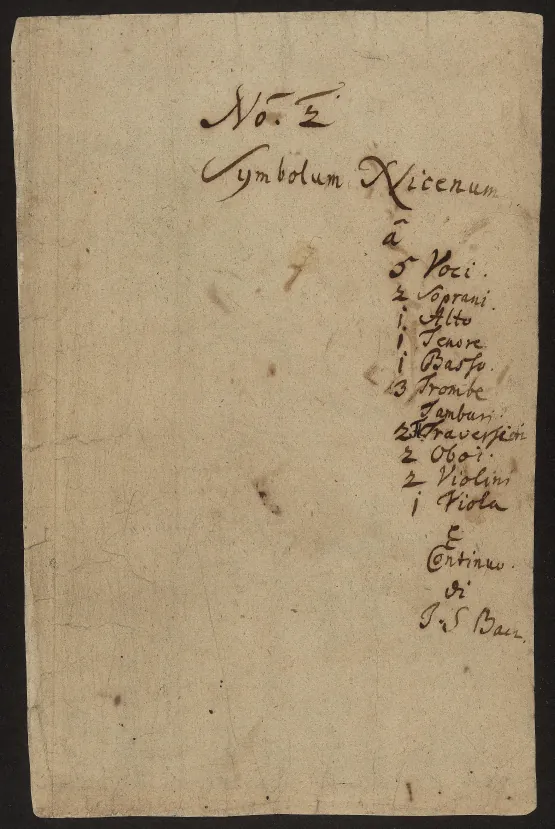 No. 2.
Symbolum Nicenum
â
5 Voci.
2 Soprani.
1. Alto
1 Tenore
1 Basso.
3 Trombe
Tamburi.
2 Traversieri
2 Oboi.
2 Violini
1 Viola
e
Continuo.
di
J. S. Bach.